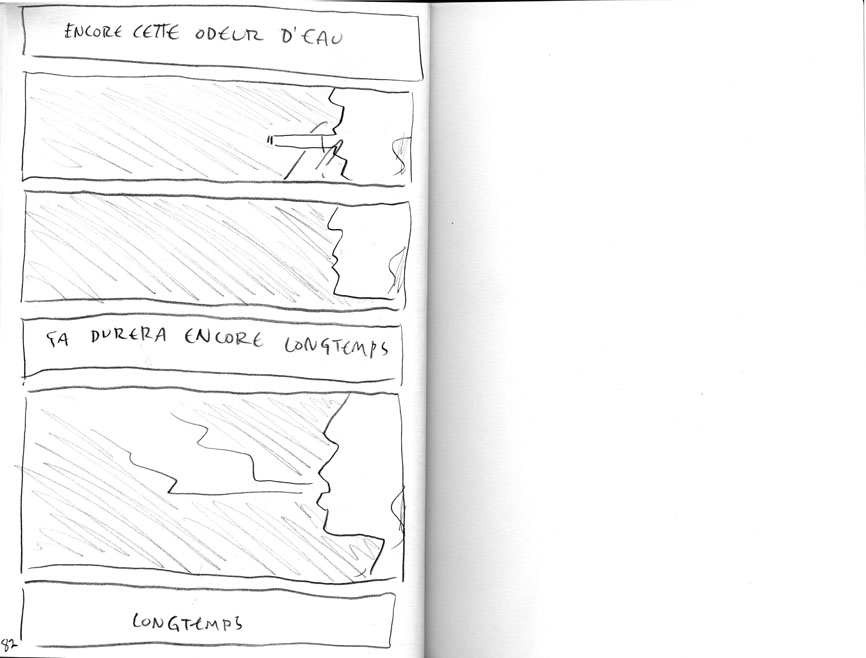 ENCORE CETTE ODEUR D'EAU
ÇA DURERA ENCORE LONGTEMPS
LONGTEMPS
82